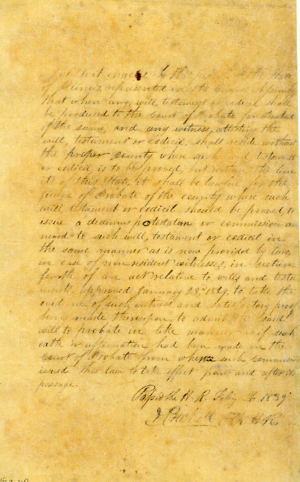 Be it enacted by the people of the State
of Illinois represented in the General Assembly
That when any will testament or codicil shall
be produced to the Court of Probate for probate
of the same, and any witness, attesting the
will, testament or codicil, shall reside without
the proper county when such will testament
or codicil is to be proved, but within the lim
its of this State, it shall be lawful for the
justice of Probate of the county where such
will, testament or codicil should be proved to
issue a dedimus potestatem or commission an
nexed to such will, testament or codicil in
the same manner as is now provided by law,
in case of non resident witnesses, in section
fourth of an act relative to wills and testa
ments, approved January 23rd 1829, to take the
such and satisfactory proof
being made thereupon to admit said
will to probate in like manner as if such
oath or affirmation had been made in the
court of Probate from whence such commission
issued This law to take effect from and after its
passage.
Passed the H. R. Feby 1839